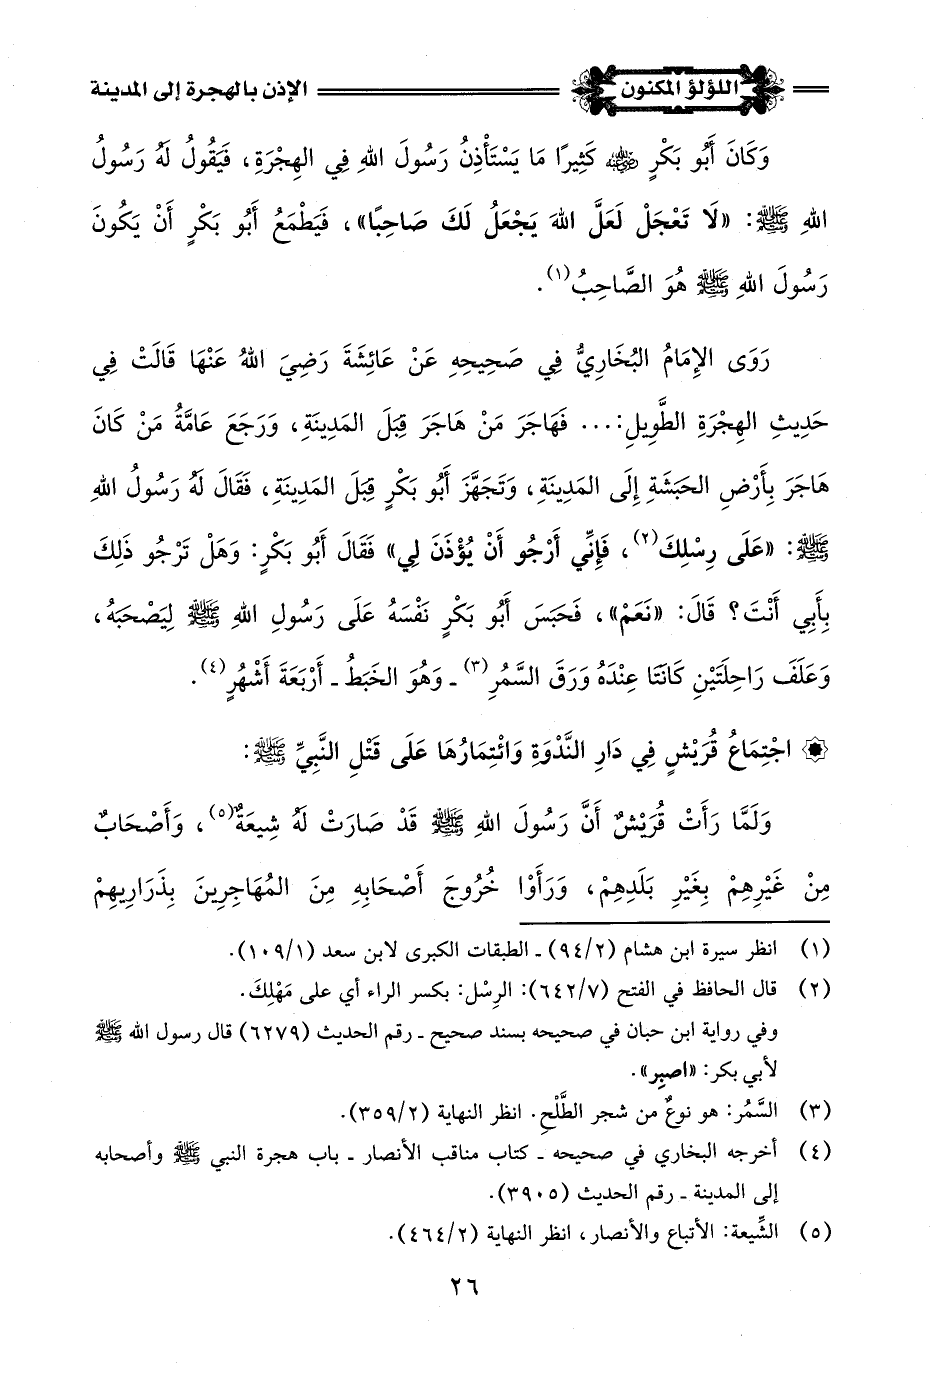 اللؤلؤ المكنون الإذن بالهجرة إلى المدينة
وَكَانَ أَبُو بَكْرٍ رضي الله عنه كَثِيرًا مَا يَسْتَأْذِنُ رَسُولَ اللهِ فِي الهِجْرَةِ، فَيَقُولُ لَهُ رَسُولُ
اللهِ ﷺ: «لَا تَعْجَلْ لَعَلَّ اللهَ يَجْعَلُ لَكَ صَاحِبًا»، فَيَطْمَعُ أَبُو بَكْرٍ أَنْ يَكُونَ
رَسُولَ اللهِ ﷺ هُوَ الصَّاحِبُ(١).
رَوَى الإِمَامُ البُخَارِيُّ فِي صَحِيحِهِ عَنْ عَائِشَةَ رَضِيَ اللهُ عَنْهَا قَالَتْ فِي
حَدِيثِ الهِجْرَةِ الطَّوِيلِ:... فَهَاجَرَ مَنْ هَاجَرَ قِبَلَ المَدِينَةِ، وَرَجَعَ عَامَّةُ مَنْ كَانَ
هَاجَرَ بِأَرْضِ الحَبَشَةِ إِلَى المَدِينَةِ، وَتَجَهَّزَ أَبُو بَكْرٍ قِبَلَ المَدِينَةِ، فَقَالَ لَهُ رَسُولُ اللهِ
ﷺ: «عَلَى رِسْلِكَ(٢)، فَإِنِّي أَرْجُو أَنْ يُؤْذَنَ لِي» فَقَالَ أَبُو بَكْرٍ: وَهَلْ تَرْجُو ذَلِكَ
بِأَبِي أَنْتَ؟ قَالَ: «نَعَمْ»، فَحَبَسَ أَبُو بَكْرٍ نَفْسَهُ عَلَى رَسُولِ اللهِ ﷺ لِيَصْحَبَهُ،
وَعَلَفَ رَاحِلَتَيْنِ كَانَتَا عِنْدَهُ وَرَقَ السَّمُرِ(٣) ـ وَهُوَ الخَبَطُ ـ أَرْبَعَةَ أَشْهُرٍ(٤).
اجْتِمَاعُ قُرَيْشٍ فِي دَارِ النَّدْوَةِ وَائْتِمَارُهَا عَلَى قَتْلِ النَّبِيِّ ﷺ:
وَلَمَّا رَأَتْ قُرَيْشٌ أَنَّ رَسُولَ اللهِ ﷺ قَدْ صَارَتْ لَهُ شِيعَةٌ(٥)، وَأَصْحَابٌ
مِنْ غَيْرِهِمْ بِغَيْرِ بَلَدِهِمْ، وَرَأَوْا خُرُوجَ أَصْحَابِهِ مِنَ المُهَاجِرِينَ بِذَرَارِيهِمْ
(١) انظر سيرة ابن هشام (٩٤/٢) ـ الطبقات الكبرى لابن سعد (١٠٩/١).
(٢) قال الحافظ في الفتح (٦٤٢/٧): الرِسْل: بكسر الراء أي على مَهْلِكَ.
وفي رواية ابن حبان في صحيحه بسند صحيح ـ رقم الحديث (٦٢٧٩) قال رسول الله ﷺ
لأبي بكر: «اصبِر».
(٣) السَّمُر: هو نوعٌ من شجر الطَّلْحِ. انظر النهاية (٣٥٩/٢).
(٤) أخرجه البخاري في صحيحه ـ كتاب مناقب الأنصار ـ باب هجرة النبي ﷺ وأصحابه
إلى المدينة ـ رقم الحديث (٣٩٠٥).
(٥) الشِّيعة: الأتباع والأنصار، انظر النهاية (٤٦٤/٢).
٢٦